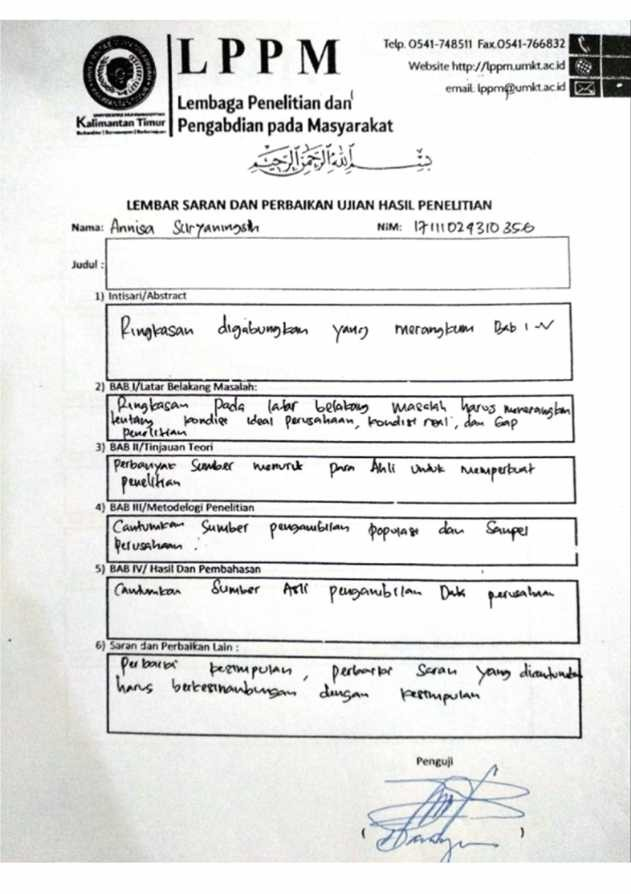 LPPM
Lembaga Penelitian dan
Pengabdian pada Masyarakat
Kalimantan Timur
Telp. 0541-748511 Fax.0541-766832
Website http://lppm.umkt.ac.id
email. lppm@umkt.ac.id
بسم الله الرحمن الرحيم
LEMBAR SARAN DAN PERBAIKAN UJIAN HASIL PENELITIAN
Nama: Annisa Suryaningsih NIM: 17111024310356
Judul :
1) Intisari/Abstract
Ringkasan digabungkan yang merangkum Bab I-V
2) BAB I/Latar Belakang Masalah:
Ringkasan Pada latar belakang masalah harus menerangkan
tentang kondisi ideal perusahaan, kondisi real, dan Gap
Penelitian
3) BAB II/Tinjauan Teori
Perbanyak Sumber menurut para Ahli untuk memperkuat
penelitian
4) BAB III/Metodelogi Penelitian
Cantumkan Sumber pengambilan populasi dan Sampel
Perusahaan.
5) BAB IV/ Hasil Dan Pembahasan
Cantumkan Sumber Asli pengambilan Data perusahaan
6) Saran dan Perbaikan Lain :
Perbaiki kesimpulan, perbaiki Saran yang dicantumkan
harus berkesinambungan dengan kesimpulan
Penguji
( )